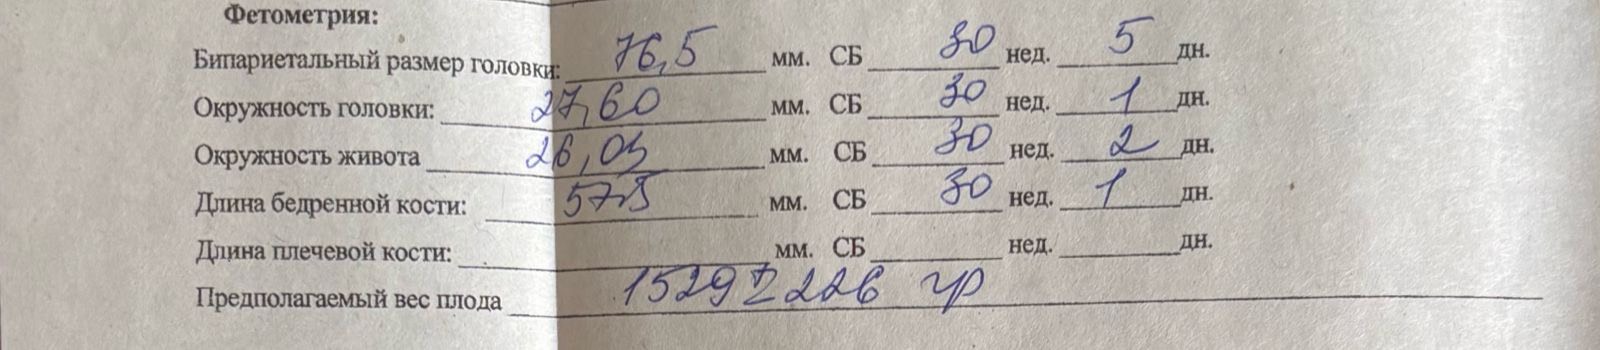 Фетометрия:
Бипариетальный размер головки: 76,5 мм. СБ 30 нед. 5 дн.
Окружность головки: 27,60 мм. СБ 30 нед. 1 дн.
Окружность живота 26,03 мм. СБ 30 нед. 2 дн.
Длина бедренной кости: 57,5 мм. СБ 30 нед. 1 дн.
Длина плечевой кости: мм. СБ нед. дн.
Предполагаемый вес плода 1529 ± 226 гр